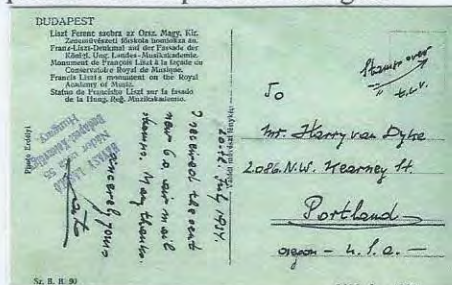 BUDAPEST
Liszt Ferenc szobra az Orsz. Magy. Kir.
Zeneművészeti főiskola homlokzatán.
Franz-Liszt-Denkmal auf der Fassade der
Königl. Ung. Landes-Musikakademie.
Monument de François Liszt à la façade du
Conservatoire Royal de Musique.
Francis Liszt's monument on the Royal
Academy of Music.
Statuo de Francisko Liszt sur la fasado
de la Hung. Reĝ. Muzikakademio.
Photo Erdélyi
LÁSZLÓ
Budapest
Hungary
20th July 1937.
I received the sent
new 6 c. air mail
stamps. Many thanks.
Sincerely yours
Stamps over
t.l.v.
To
Mr. Harry van Dyke
2086. N.W. Kearney St.
Portland
Oregon - U.S.a. -
Sz. B. B. 90